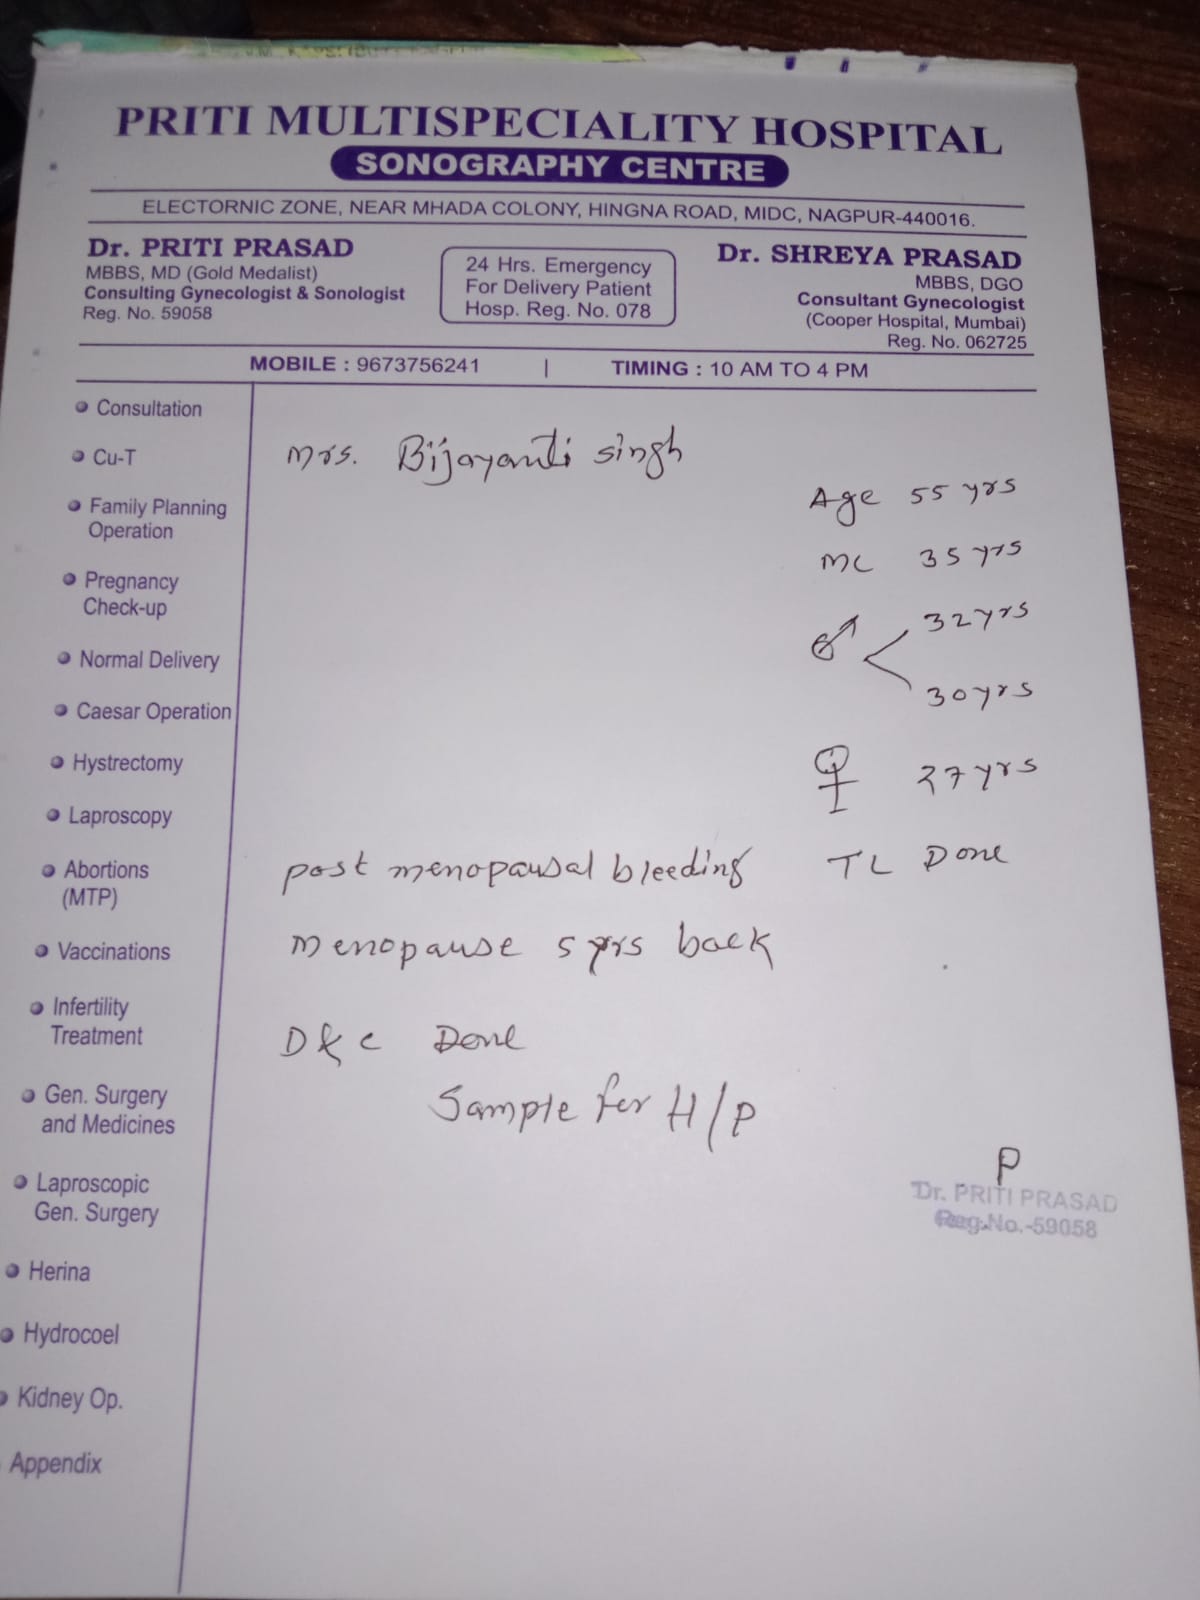 PRITI MULTISPECIALITY HOSPITAL
SONOGRAPHY CENTRE
ELECTORNIC ZONE, NEAR MHADA COLONY, HINGNA ROAD, MIDC, NAGPUR-440016.
Dr. PRITI PRASAD
MBBS, MD (Gold Medalist)
Consulting Gynecologist & Sonologist
Reg. No. 59058
24 Hrs. Emergency
For Delivery Patient
Hosp. Reg. No. 078
Dr. SHREYA PRASAD
MBBS, DGO
Consultant Gynecologist
(Cooper Hospital, Mumbai)
Reg. No. 062725
MOBILE : 9673756241 | TIMING : 10 AM TO 4 PM
Consultation
Cu-T
Family Planning
Operation
Pregnancy
Check-up
Normal Delivery
Caesar Operation
Hystrectomy
Laproscopy
Abortions
(MTP)
Vaccinations
Infertility
Treatment
Gen. Surgery
and Medicines
Laproscopic
Gen. Surgery
Herina
Hydrocoel
Kidney Op.
Appendix
Mrs. Bijayanti singh
Age 55 yrs
MC 35 yrs
♂ 32 yrs
30 yrs
♀ 27 yrs
post menopausal bleeding TL Done
Menopause 5 yrs back
D & C Done
Sample for H/P
P
Dr. PRITI PRASAD
Reg.No.-59058